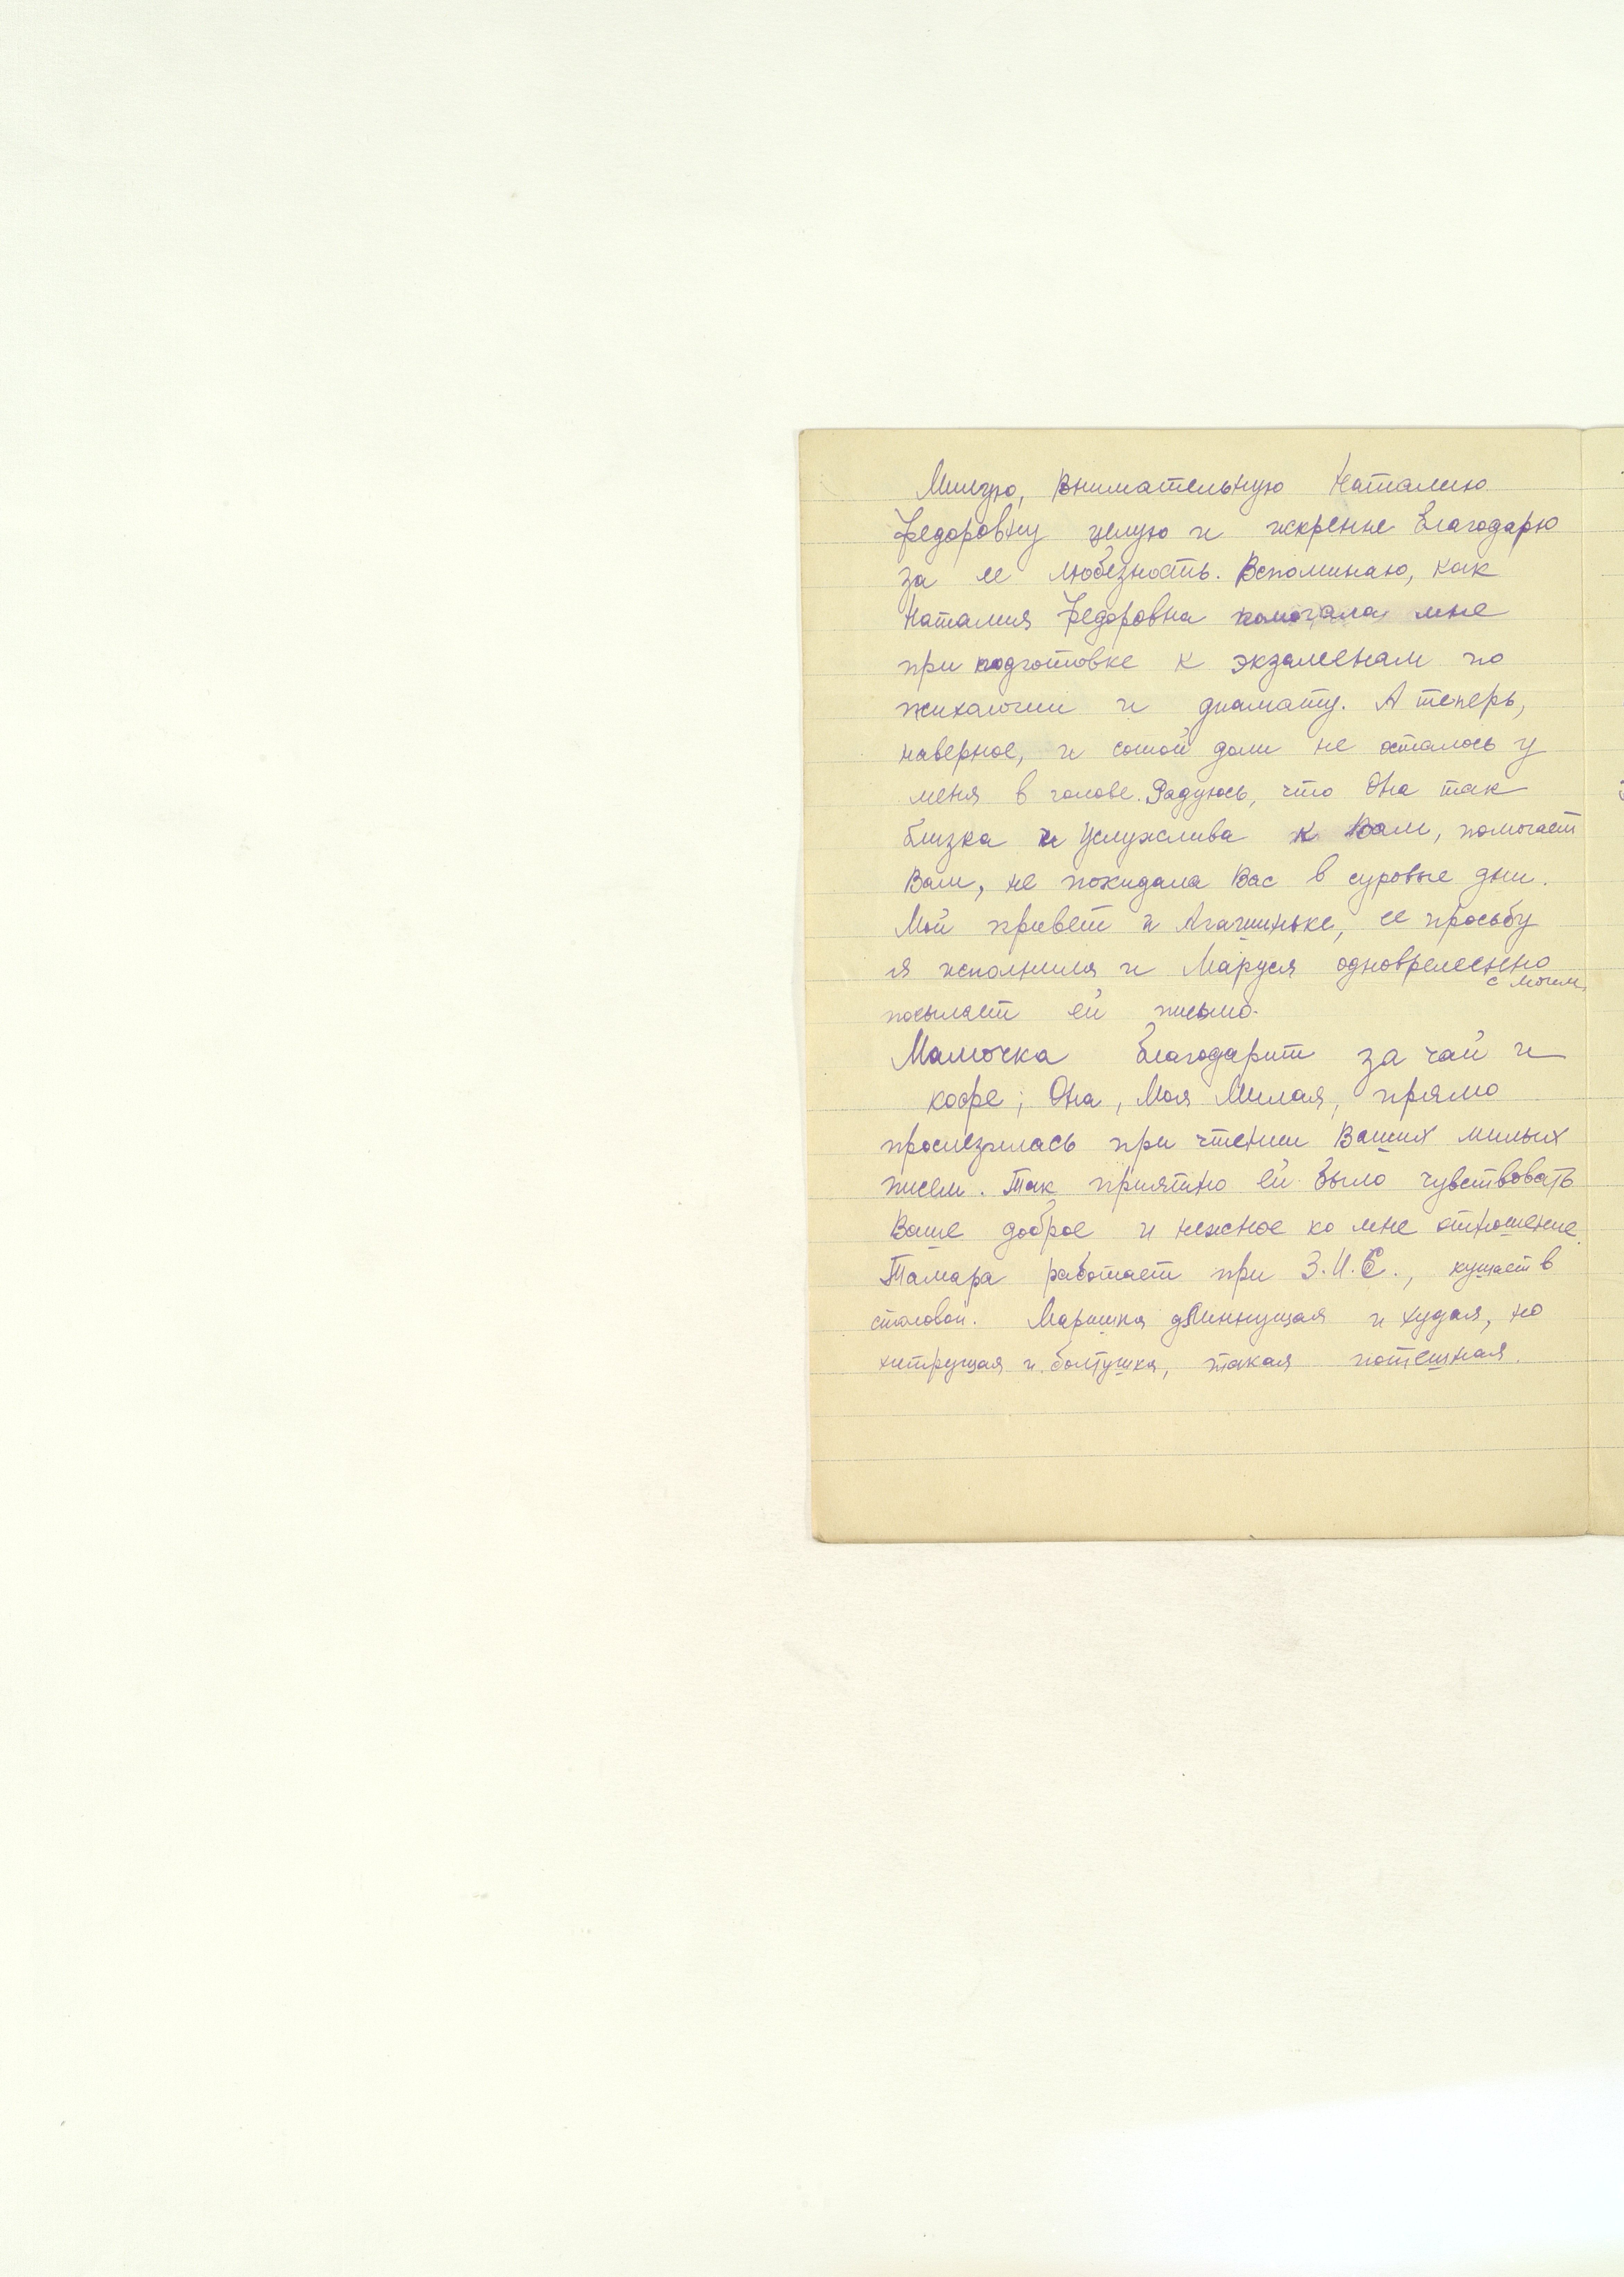 Милую, внимательную Наталию
Федоровну целую и искренне благодарю
за ее любезность. Вспоминаю, как
Наталия Федоровна помогала мне
при подготовке к экзаменам по
психологии и диамату. А теперь,
наверное, и сотой доли не осталось у
меня в голове. Радуюсь, что Она так
близка и услужлива к Вам, помогает
Вам, не покидала Вас в суровые дни.
Мой привет и Агашиньке, ее просьбу
я исполнила и Маруся одновременно
с моим
посылает ей письмо.
Мамочка благодарит за чай и
кофе; Она, Моя Милая, прямо
прослезилась при чтении Ваших милых
писем. Так приятно ей было чувствовать
Ваше доброе и нежное ко мне отношение.
Тамара работает при З.И.С., кушает в
столовой. Маришка длиннущая и худая, но
хитрущая и болтушка, такая потешная.